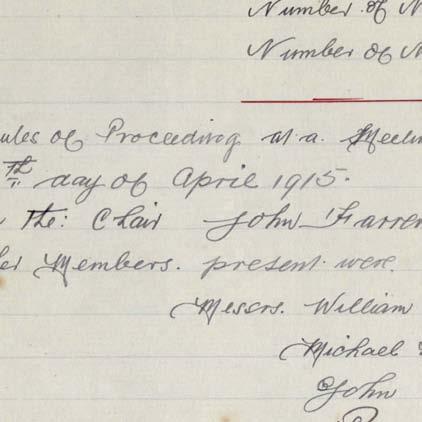 Number of N
Number of N
ules of Proceeding at a Meetin
th day of April 1915.
the: Chair John Farren
er Members. present were.
Messrs. William
Michael
John